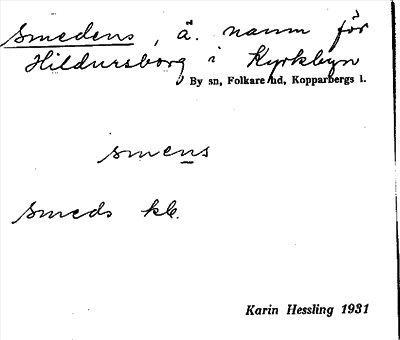 Smedens, ä. namn för
Hildursborg i Kyrkbyn
By sn, Folkare hd, Kopparbergs l.
smens
Smeds kb.
Karin Hessling 1931